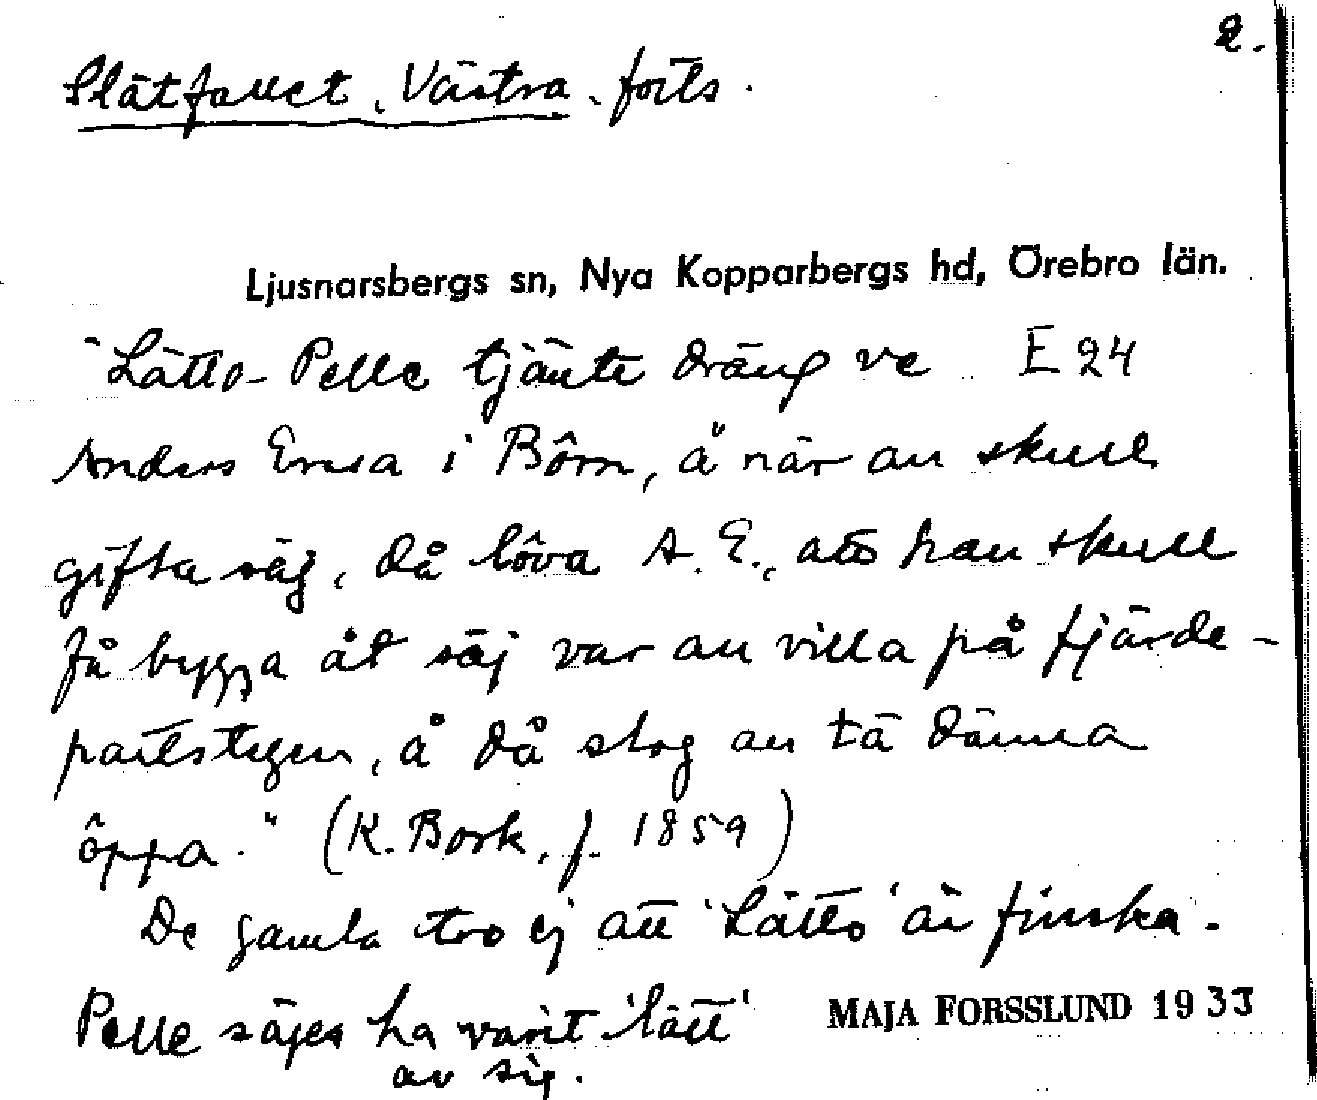 2.
Slätfallet, Västra, forts.
Ljusnarsbergs sn, Nya Kopparbergs hd, Örebro län.
"Lätto-Pelle tjänte dräng ve E 24
Anders Ersa i Bôrn, å när an skull
gifta säj, då lôva A. E., att han skull
få bygga åt säj var an villa på fjärde-
partstegen, å då slog an tä dänna
ôppa." (K. Bork, f. 1859)
De gamla tro ej att 'Lätto' är finska.
Pelle säges ha varit 'lätt'
av sig.
MAJA FORSSLUND 1933